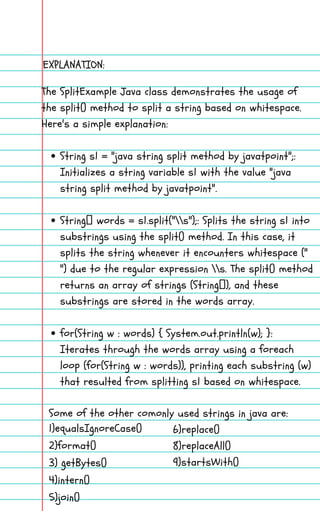 EXPLANATION:
The SplitExample Java class demonstrates the usage of
the split() method to split a string based on whitespace.
Here's a simple explanation:
• String s1 = "java string split method by javatpoint";:
Initializes a string variable s1 with the value "java
string split method by javatpoint".
• String[] words = s1.split("\\s");: Splits the string s1 into
substrings using the split() method. In this case, it
splits the string whenever it encounters whitespace ("
") due to the regular expression \\s. The split() method
returns an array of strings (String[]), and these
substrings are stored in the words array.
• for(String w : words) { System.out.println(w); }:
Iterates through the words array using a foreach
loop (for(String w : words)), printing each substring (w)
that resulted from splitting s1 based on whitespace.
Some of the other comonly used strings in java are:
1)equalsIgnoreCase()
2)format()
3) getBytes()
4)intern()
5)join()
6)replace()
8)replaceAll()
9)startsWith()